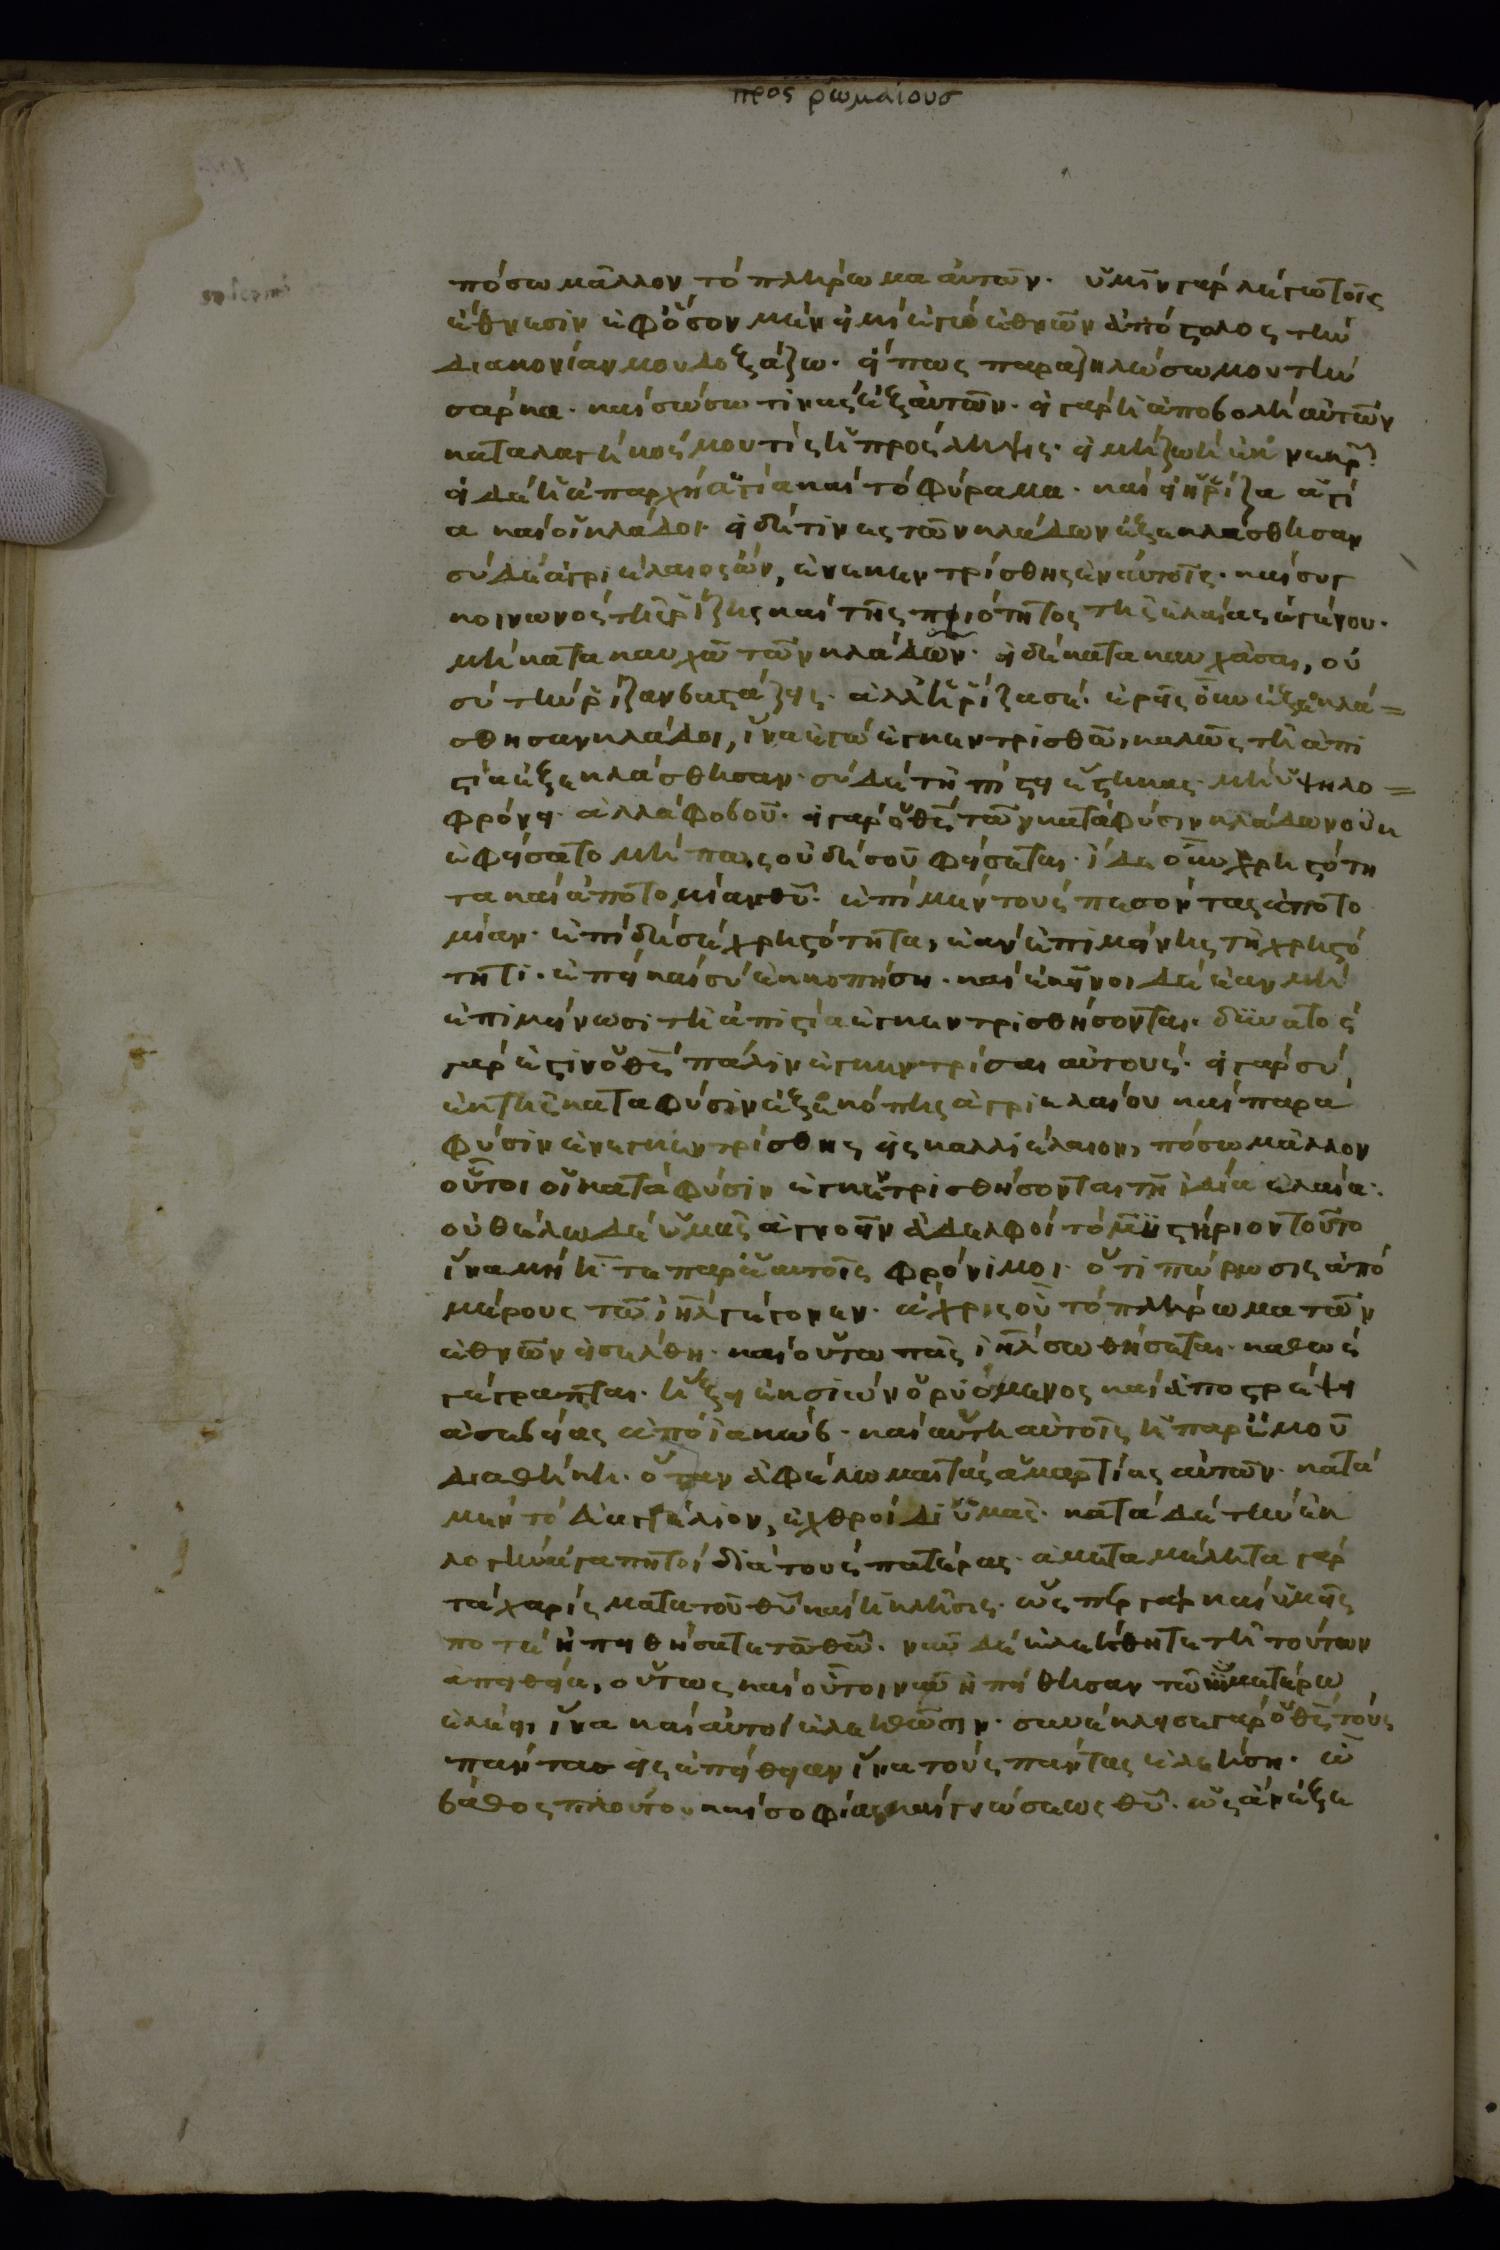 προς ρωμαίουσ
πόσω μᾶλλον τό πλήρωμα ἀυτῶν. ὑμῖν γαρ λέγω τοῖς
ἔθνεσιν ἐφ ὅσον μέν εἰμί ἐγώ ἐθνῶν ἀπόστολος τήν
διακονίαν μου δοξάζω. εἴ πως παραζηλώσω μου τήν
σάρκα. καί σώσω τινάς ἐξ ἀυτῶν. εἰ γαρ ἡ ἀποβολή αὐτῶν
καταλαγή κόσμου τίς ἡ πρόσληψις. εἰ μή ζωή ἐκ νεκρ
εἰ δέ ἡ ἀπαρχή ἁγία καί τό φύραμα. καί εἰ ἡ ῥίζα ἁγί
α καί οἱ κλάδοι. εἰ δέ τινες τῶν κλάδων ἐξεκλάσθησαν
σύ δέ ἀγριέλαιος ὤν, ἐνεκεντρίσθης ἐν ἀυτοῖς. καί συγ
κοινωνός τῆς ῥίζης καί τῆς πιότητος τῆς ἐλαίας ἐγένου.
μή κατακαυχῶ τῶν κλάδων. εἰ δέ κατακαυχᾶσαι, οὐ
σύ τήν ῥίζαν βαστάζεις. ἀλλ ἡ ῥίζα σέ. ἐρεῖς οὖν ἐξεκλά=
σθησαν κλάδοι, ἵνα ἐγώ ἐγκεντρισθῶ, καλῶς τῆ ἀπι
στία ἐξεκλάσθησαν. σύ δέ τῆ πίστει ἕστηκας. μή ὑψηλο=
φρόνει. ἀλλά φοβοῦ. εἰ γαρ ὁ θς τῶν κατά φύσιν κλάδων οὐκ
ἐφείσατο μή πως οὐδέ σοῦ φείσεται. ἴδε οὖν χρηστότη
τα καί ἀποτομίαν θῦ. ἐπί μέν τούς πεσόντας ἀποτο
μίαν. ἐπί δέ σέ χρηστότητα, ἐάν ἐπιμείνης τῆ χρηστό
τητι. ἐπεί καί σύ ἐκκοπήση. καί ἐκεῖνοι δέ ἐάν μή
ἐπιμείνωσι τῆ ἀπιστία ἐγκεντρισθήσονται. δύνατός
γαρ ἐστίν ὁ θς πάλιν ἐγκεντρίσαι αὐτούς. εἰ γαρ σύ
ἐκ τῆς κατα φύσιν ἐξεκόπης ἀγριελαίου καί παρά
φύσιν ἐνεγκεντρίσθης εἰς καλλιέλαιον, πόσω μᾶλλον
οὗτοι οἱ κατά φύσιν ἐγκεντρισθήσονται τῆ ἰδία ἐλαία.
οὐ θέλω δέ ὑμᾶς ἀγνοεῖν ἀδελφοί τό μυστήριον τοῦτο
ἵνα μή ἦτε παρ ἑαυτοῖς φρόνιμοι. ὅτι πώρωσις ἀπό
μέρους τῶ ιηλ γέγονεν. ἄχρις οὗ τό πλήρωμα τῶν
ἐθνῶν εἰσέλθη. καί οὕτω πᾶς ιηλ σωθήσεται. καθώς
γέγραπται. ἥξει ἐκ σιών ὁ ῥυόμενος καί ἀποστρέψει
ἀσεβείας ἀπό ἰακώβ. καί αὕτη αὐτοῖς ἡ παρ ἐμοῦ
διαθήκη. ὅταν ἀφέλωμαι τάς ἁμαρτίας αὐτῶν. κατά
μέν τό ἐυαγγέλιον, ἐχθροί δι ὑμᾶς. κατά δέ τήν ἐκ
λογήν ἀγαπητοί διά τούς πατέρας. ἀμεταμέλητα γαρ
τά χαρίσματα τοῦ θῦ καί ἡ κλῆσις. ὥσπερ γαρ καί ὑμεῖς
ποτέ ἠπειθήσατε τῶ θῶ. νῦν δέ ἠλεήθητε τῆ τούτων
ἀπειθεία, οὕτως καί οὗτοι νῦν ἠπείθησαν τῶ ὑμετέρω
ἐλέει, ἵνα καί ἀυτοί ἐλεηθῶσιν. συνέκλεισε γαρ ὁ θς τούς
πάντας εἰς ἀπείθειαν ἵνα τούς πάντας ἐλεήση. ὦ
βάθος πλούτου καί σοφίας καί γνώσεως θῦ. ὡς ἀνέξε